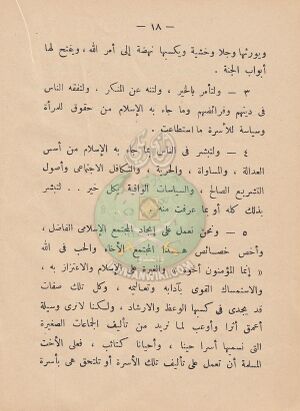 — ١٨ —
ويورثها وجلا وخشية ويكسبها نهضة إلى أمر الله ، ويفتح لها
أبواب الجنة .
٣ — ولتأمر بالخير ، ولتنه عن المنكر ، ولتفقه الناس
في دينهم وفرائضهم وما جاء به الإسلام من حقوق للمرأة
وسياسة للأسرة ما استطاعت .
٤ — ولتبشر في الناس بما جاء به الإسلام من أسس
العدالة ، والمساواة ، والحرية ، والتكافل الاجتماعي وأصول
التشريع الصالح ، والسياسات الوافية بكل خير .. لتبشر
بذلك كله أو بما عرفت منه .
٥ — ونحن نعمل على إيجاد المجتمع الإسلامي الفاضل ،
وأخص خصائص هذا المجتمع الإخاء والحب في الله
« إنما المؤمنون أخوة » والغيرة على الإسلام والاعتزاز به ،
والاستمساك القوى بآدابه وتعاليمه ، وكل تلك صفات
قد يجدى في كسبها الوعظ والارشاد ، ولكنا لانرى وسيلة
أعمق أثرا وأوعب لما نريد من تأليف الجماعات الصغيرة
التي نسميها أسرا حينا ، وأحيانا كتائب ، فعلى الأخت
المسلمة أن تعمل على تأليف تلك الأسرة أو تلتحق هي بأسرة